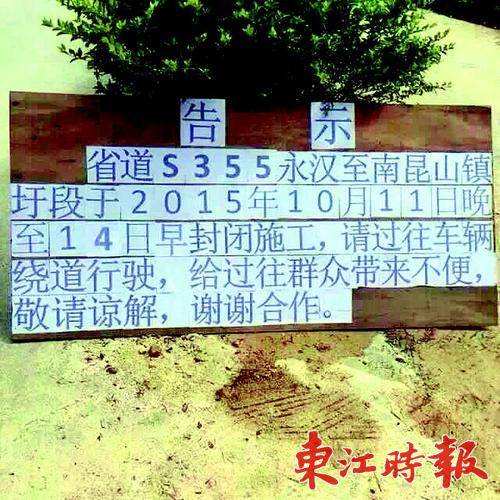 告示
省道S355永汉至南昆山镇
圩段于2015年10月11日晚
至14日早封闭施工,请过往车辆
绕道行驶,给过往群众带来不便,
敬请谅解,谢谢合作。
東江時報